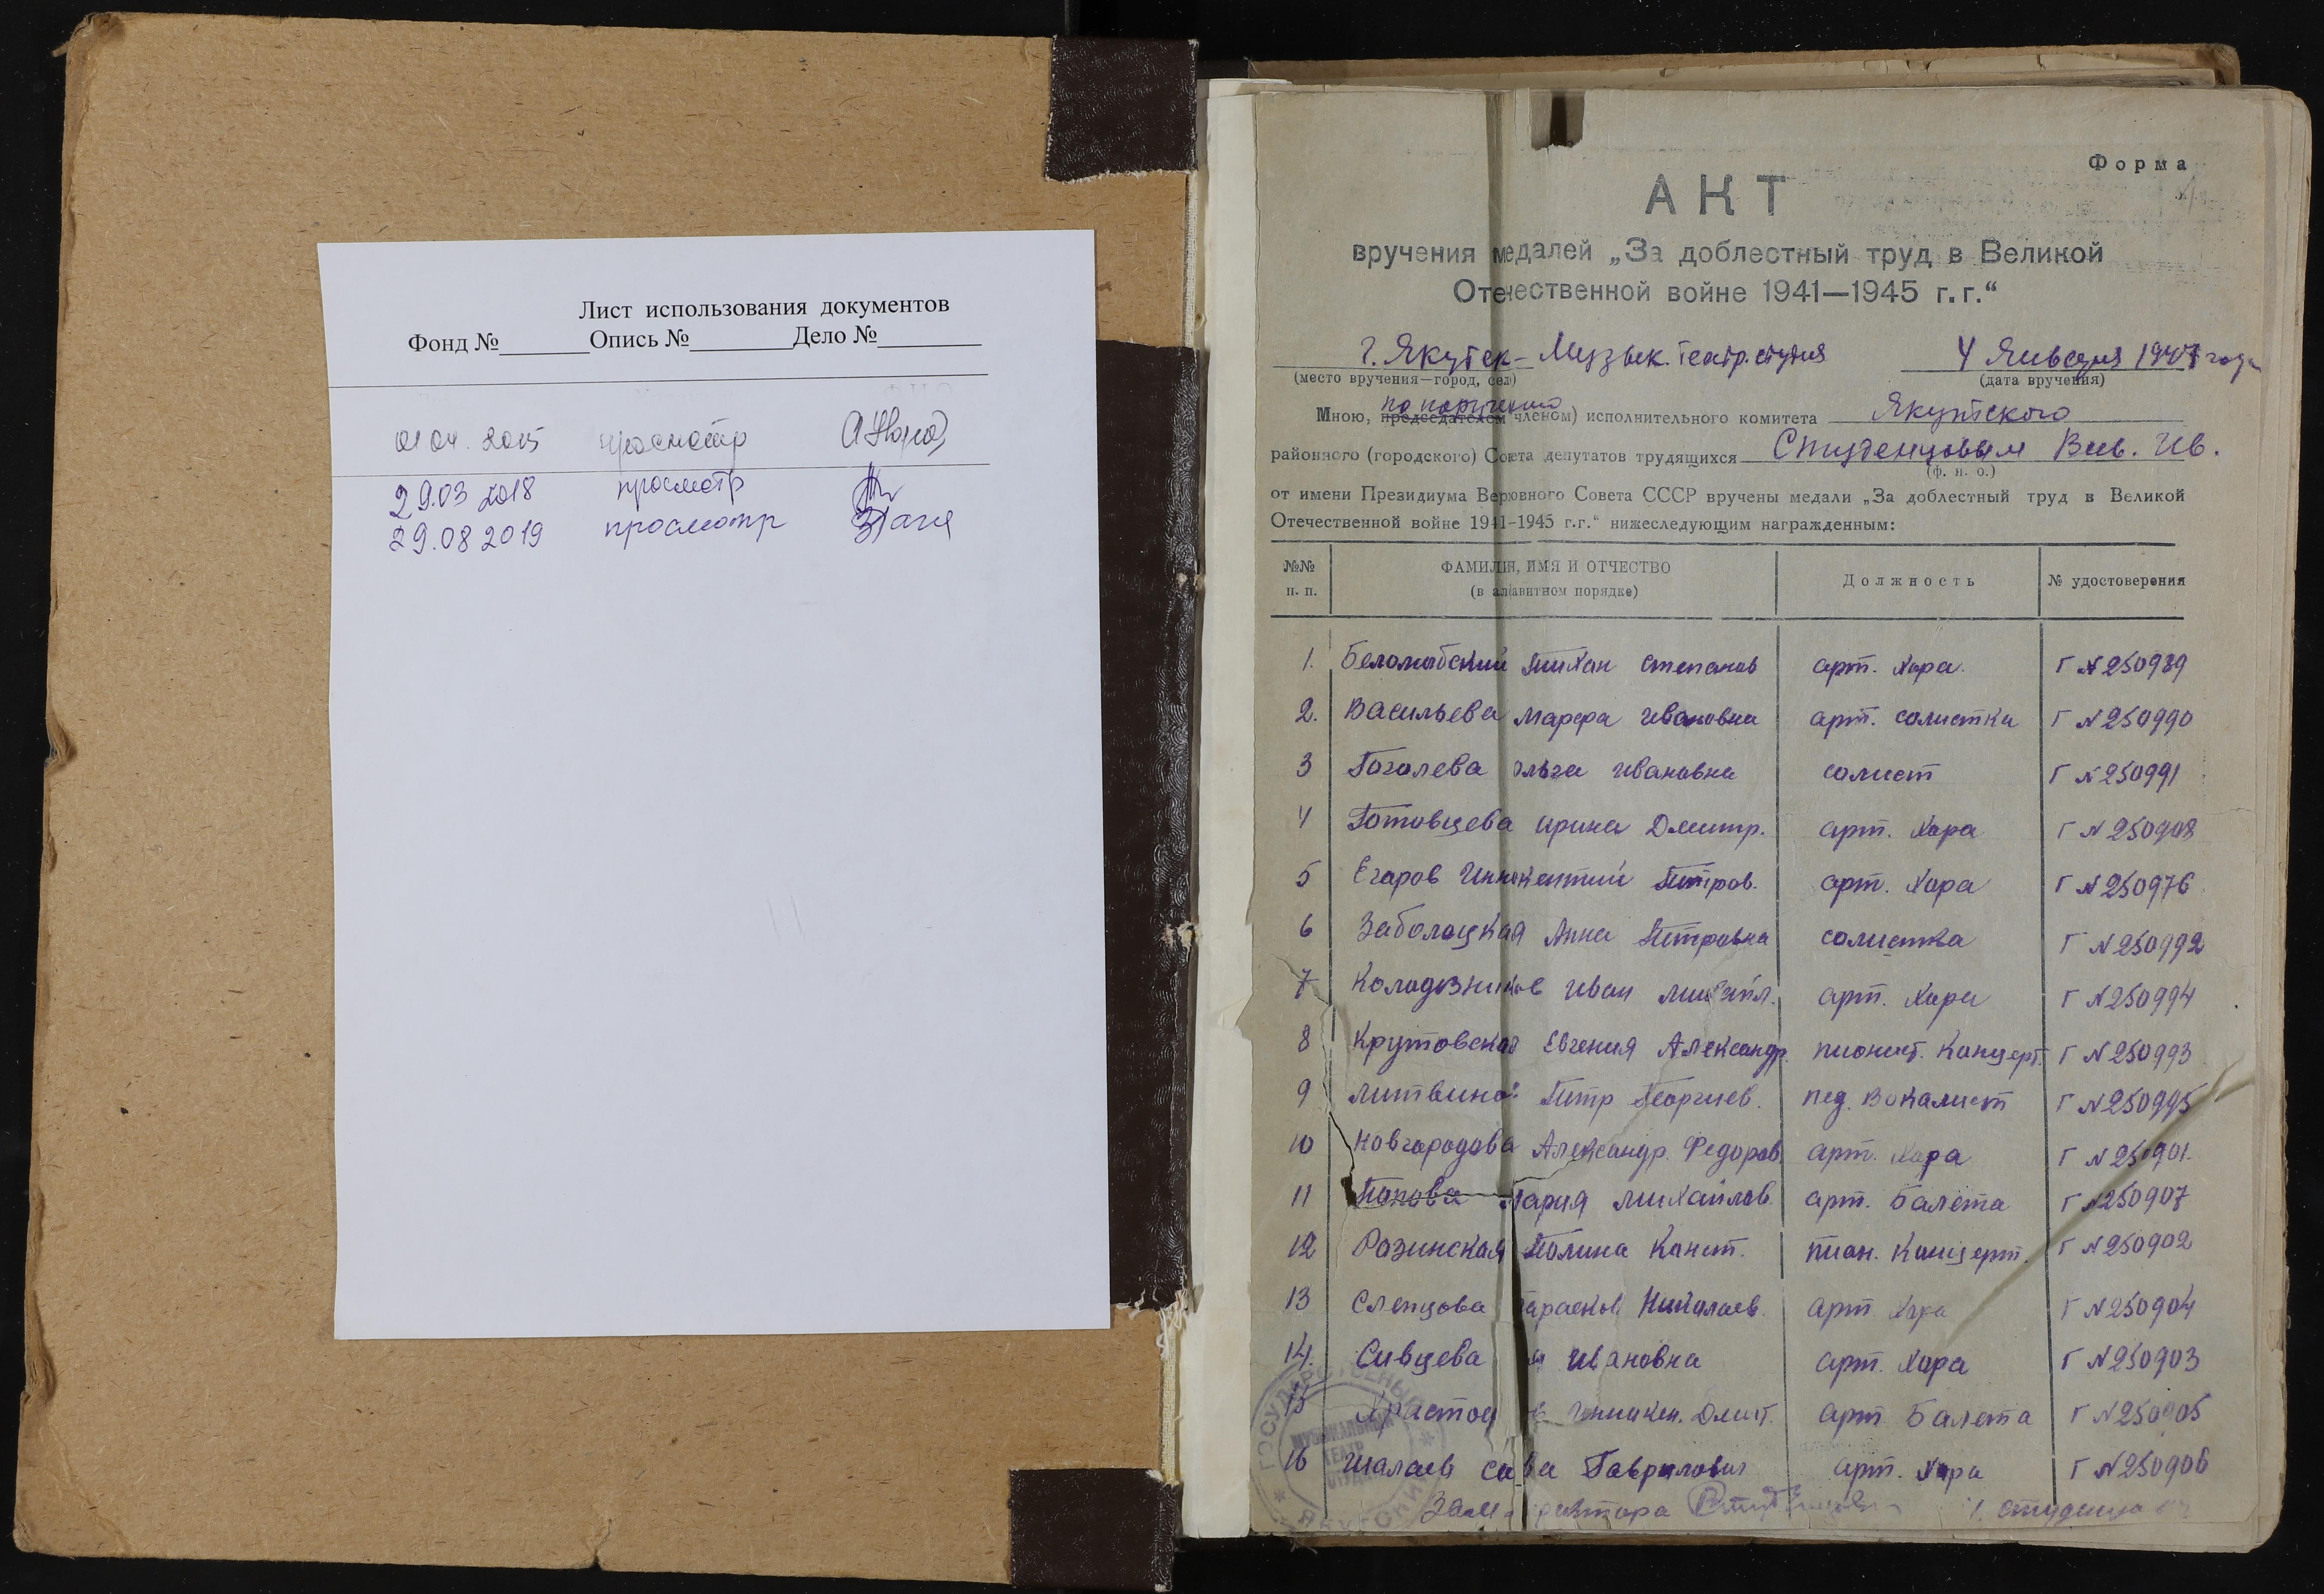 Лист использования документов
Фонд №_______Опись №________Дело №________
01 04. 2015 просмотр
29.03 2018 просмотр
29.08 2019 просмотр
Форма
АКТ
вручения медалей „За доблестный труд в Великой
Отечественной войне 1941—1945 г.г.“
г. Якутск - Музык. театр. студия 4 Января 1947 года
(место вручения—город, село) (дата вручения)
по поручению
Мною, председателем членом) исполнительного комитета Якутского
районного (городского) Совета депутатов трудящихся Студенцовым Ив.
(ф. и. о.)
от имени Президиума Верховного Совета СССР вручены медали „За доблестный труд в Великой
Отечественной войне 1941-1945 г.г.“ нижеследующим награжденным:
№№ п. п. ФАМИЛИЯ, ИМЯ И ОТЧЕСТВО (в алфавитном порядке) Должность № удостоверения
1. Степанов арт. хора. Г №250989
2. Васильева Марфа Ивановна арт. солистка Г №250990
3 Гоголева Ольга Ивановна солист Г №250991
4 Готовцева Ирина Дмитр. арт. хора Г №250908
5 Егоров Иннокентий Петров. арт. хора Г №250976
6 Заболоцкая Анна Петровна солистка Г №250992
7 Колодезников Иван Михайл. арт. хора Г №250994
8 Крутовская Евгения Александр. пионист. концерт. Г №250993
9 Литвинов Петр Георгиев. пед. вокалист Г №250995
10 Новгородова Александр. Федоров. арт. хора Г №250901
11 Попова Мария Михайлов. арт. балета Г №250907
12 Розинская Полина Конст. пиан. концерт. Г №250902
13 Слепцова Парасков. Николаев. арт хора Г №250904
14. Сивцева Ивановна арт. хора Г №250903
15 Дмит. арт балета Г №250905
16 Шалаев Сава Гаврилович арт. хора Г №250906
Зам. директора